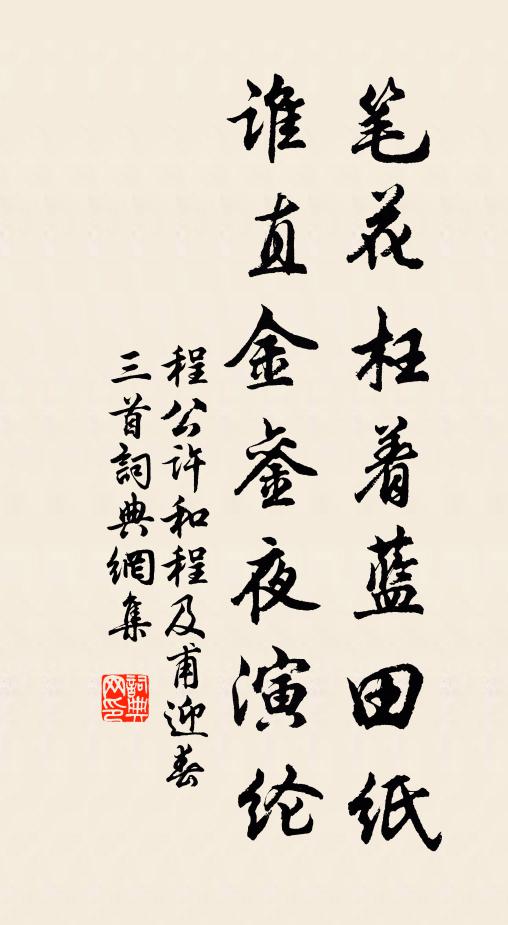 笔花枉着蓝田纸
谁直金銮夜演纶
程公许和程及甫迎春
三首詞典網集
詞典网印